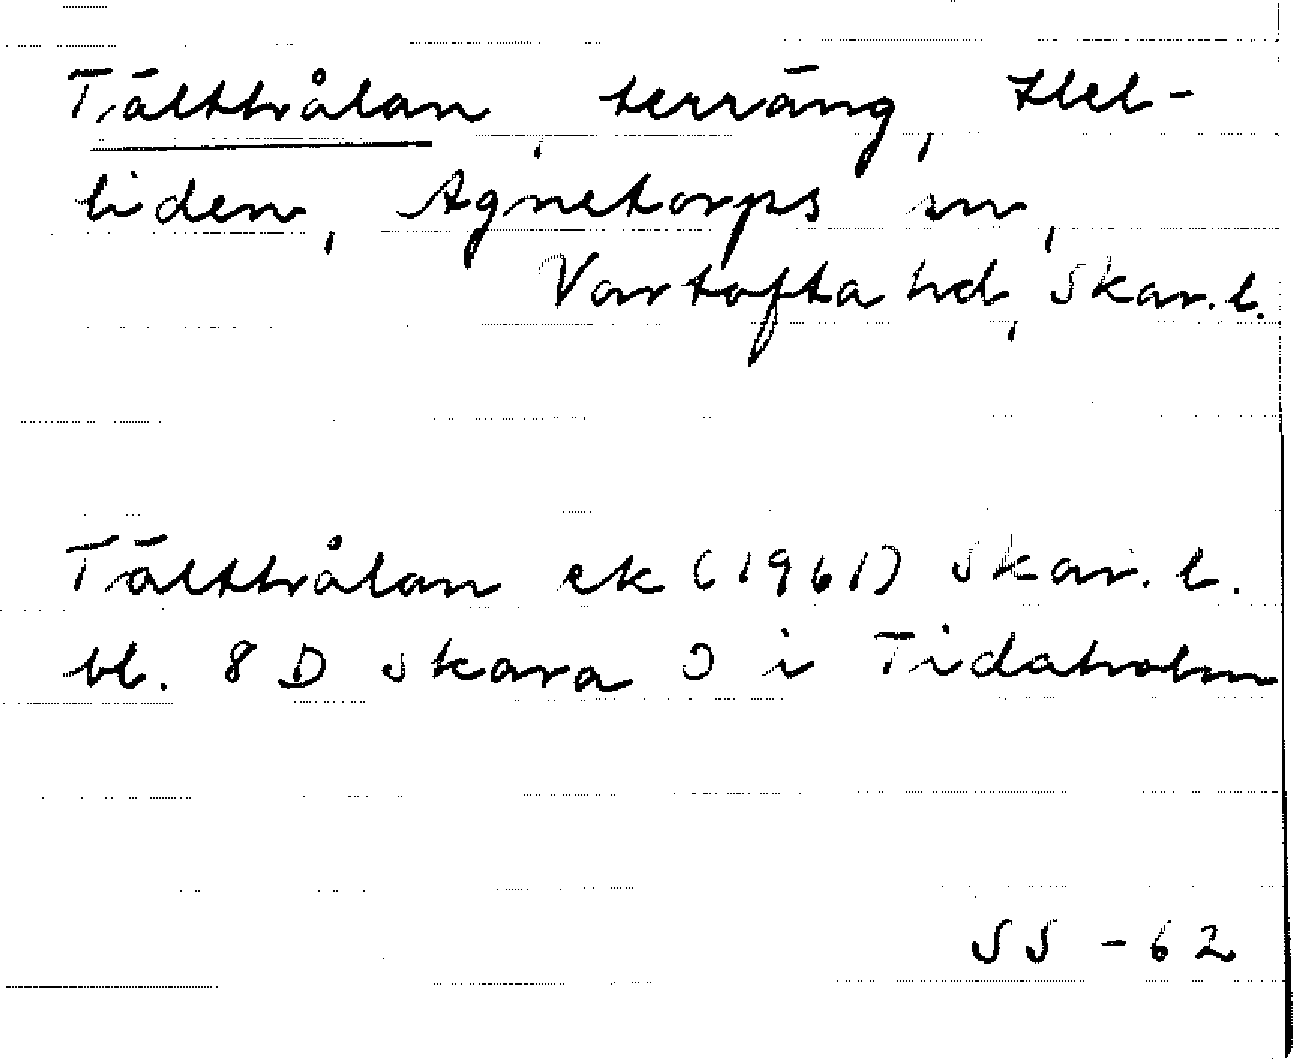 Tälthålan, terräng, Hel-
liden, Agnetorps sn,
Vartofta hd, Skar. l.
Tälthålan ek (1961) Skar. l.
bl. 8 D Skara O i Tidaholm
SS -62